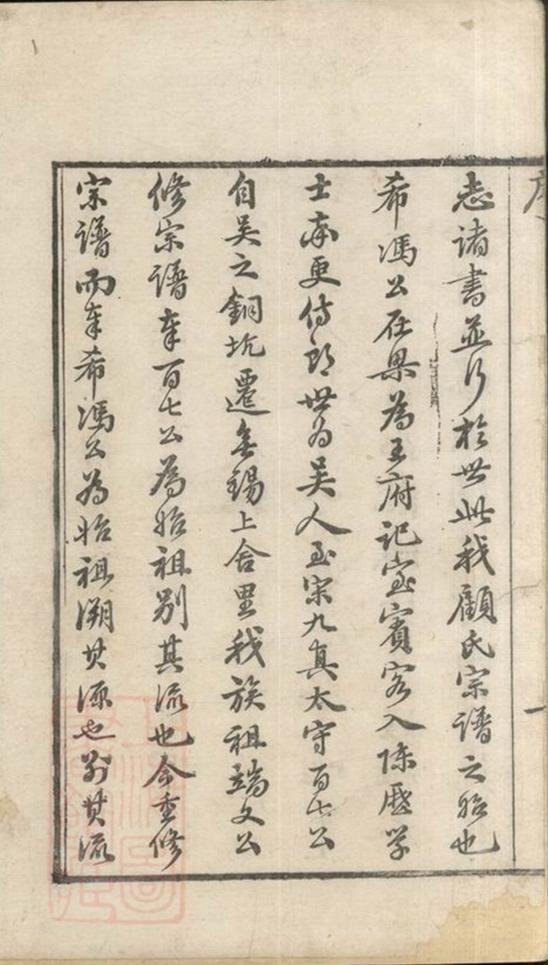 序
志諸書並行於世此我顧氏宗譜之始也
希馮公在梁為王府記室賓客入陳歷學
士兼更侍郎世為吳人至宋九真太守百七公
自吳之銅坑遷無錫上舍里我族祖端文公
修宗譜奉百七公為始祖別其流也今重修
宗譜而奉希馮公為始祖溯其源也别其流
一